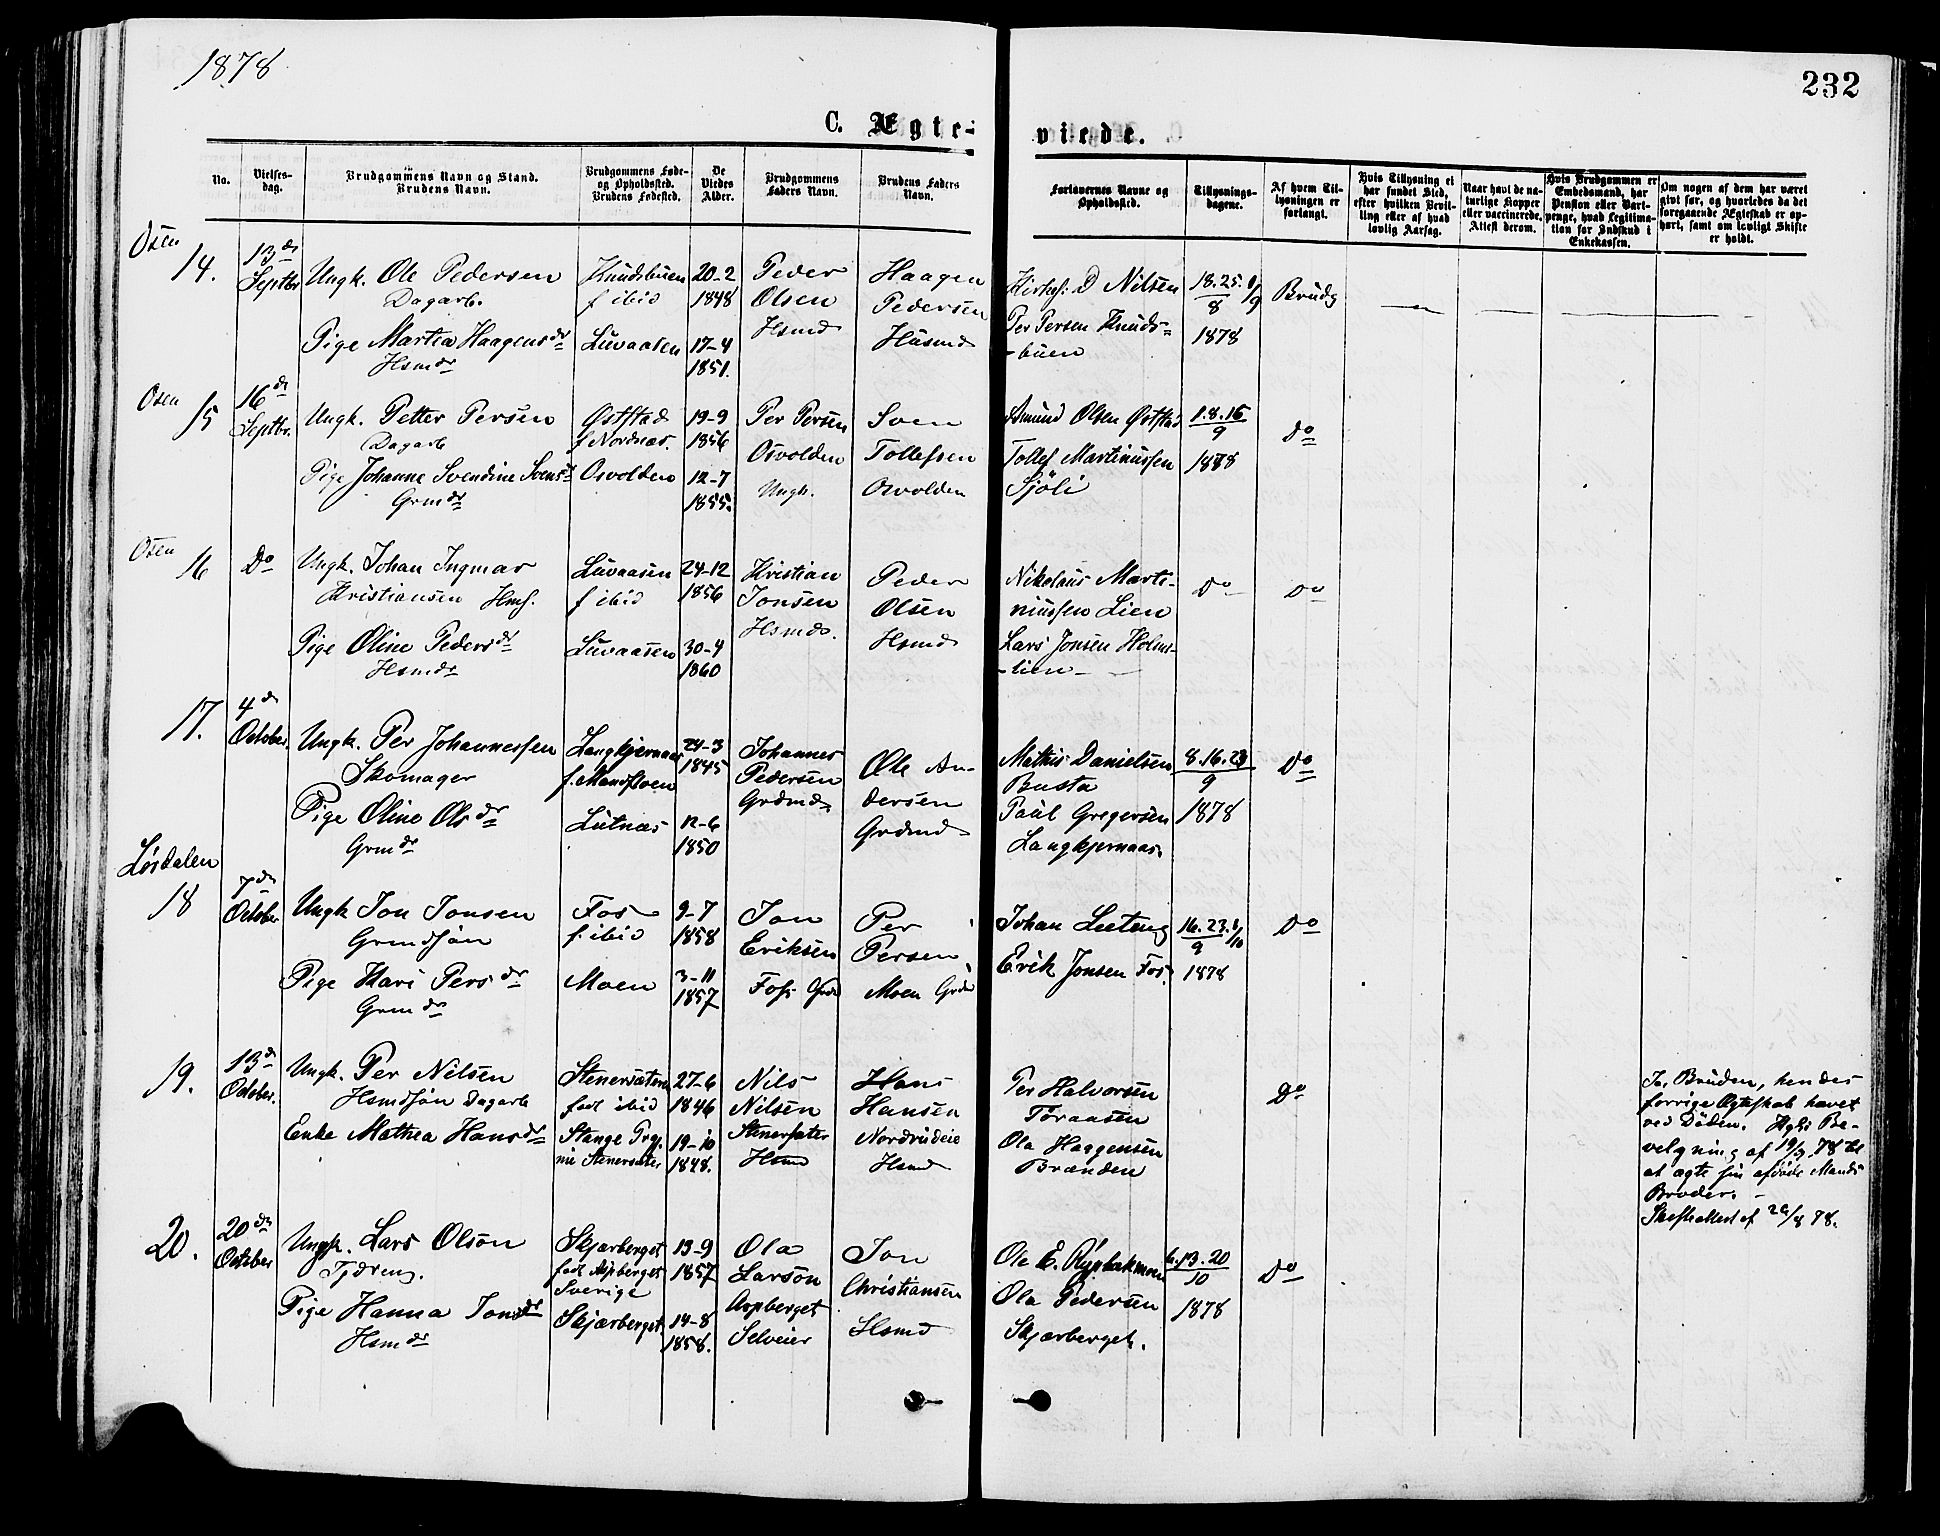 1878
232
C. Ægte-
viede.
No.
Vielses-
dag.
Brudgommens Navn og Stand.
Brudens Navn.
Brudgommens Føde-
og Opholdssted.
Brudens Fødested.
De
Viedes
Alder.
Brudgommens
Faders Navn.
Brudens Faders
Navn.
Forlovernes Navne og
Opholdssted.
Tillysnings-
dagene.
Af hvem Til-
lysningen er
forlangt.
Hvis Tillysning ei
har fundet Sted,
efter hvilken Bevil-
ling eller af hvad
lovlig Aarsag.
Naar havt de na-
turlige Kopper
eller vaccinerede,
Attest derom.
Hvis Brudgommen er
Embedsmand, har
Pension eller Vart-
penge, hvad Legitima-
tion for Indskud i
Enkekassen.
Om nogen af dem har været
givt før, og hvorledes da det
foregaaende Ægteskab er op-
hørt, samt om lovligt Skifte
er holdt.
Osen
14.
13de
Septbr
Ungk. Ole Pedersen
Dagarb.
Pige Martia Haagensdr
Hsmdr
Knudsbuen
f ibid
Luvaasen
20-2
1848
17-4
1851.
Peder
Olsen
Hsmd
Haagen
Pedersen
Husmd
Kirkes: D Nilsen
Per Persen Knuds-
-buen
18.25.1/9
8
1878
Brudg
Osen
15
16de
Septbr.
Ungk. Petter Persen
Dagarb
Pige Johanne Svendine Svensd
Grmdr
Øststad
f Nordnæs.
Osvolden
19-9
1856
12-7
1855.
Per Persen
Osvolden
Ungk.
Sven
Tollefsen
Osvolden
Asmund Olsen Øststad
Tollef Martinussen
Sjøli
1.8.15
9
1878
Do
Osen
16
Do
Ungk. Johan Ingmar
Kristiansen Hmf.
Pige Oline Pedersdr
Hsmdr
Luvaasen
f ibid
Luvaasen
24-12
1856
30-4
1860
Kristian
Jonsen
Hsmd.
Peder
Olsen
Hsmd
Nikolaus Marti-
nussen Lien
Lars Jonsen Holm-
-lien-
Do
Do
17.
4de
October.
Ungk. Per Johannessen
Skomager
Pige Oline Olsdr
Grmdr
Langkjernaas
f. Mandfloen
Lutnæs
24-3
1845
12-6
1850
Johannes
Pedersen
Grdmd
Ole An-
dersen
Grdmd
Mathis Danielsen
Busta
Paul Gregersen
Langkjernaas.
8.16.23
9
1878
Do
Lørdalen
18
7de
October
Ungk Jon Jonsen
Grmdsøn
Pige Kari Persdr
Grmdr
Fos
f. ibid
Moen
9-7
1858
3-11
1857
Jon
Eriksen
Foss Grd
Per
Persen
Moen Grd
Johan Leeteng
Erik Jonsen Fos.
16.23.1/10
9
1878
Do
19.
13de
October.
Ungk. Per Nilsen
Hsmdsøn Dagarb
Enke Mathea Hansdr
Stenersæteren
født ibid
Stange Prg.
nu Stenersæter
27-6
1846
19-10
1848.
Nils
Nilsen
Stenersæter
Hsmd
Hans
Hansen
Nordrudeie
Hsmd
Per Halvorsen
Toraasen
Ola Haagensen
Brænden
Do
Ja, Bruden, hendes
forrige Ægteskab hævet
ved Døden. Kgl. Be-
velgning af 19/9 78 til
at ægte sin afdøde Mands
Broder.-
Skifteattest af 20/8 78.
20.
20de
October
Ungk. Lars Olson
Tjæreng.
Pige Hanna Jonsdr
Hsmdr
Skjærberget
født Aspberget
Sverige
Skjærberget
13-9
1857
14-8
1858.
Ola
Larson
Aspberget
Selveier
Jon
Christiansen
Hsmd
Ole E. Nybakmoen
Ola Pedersen
Skjærberget.
6.13.20
10
1878
Do